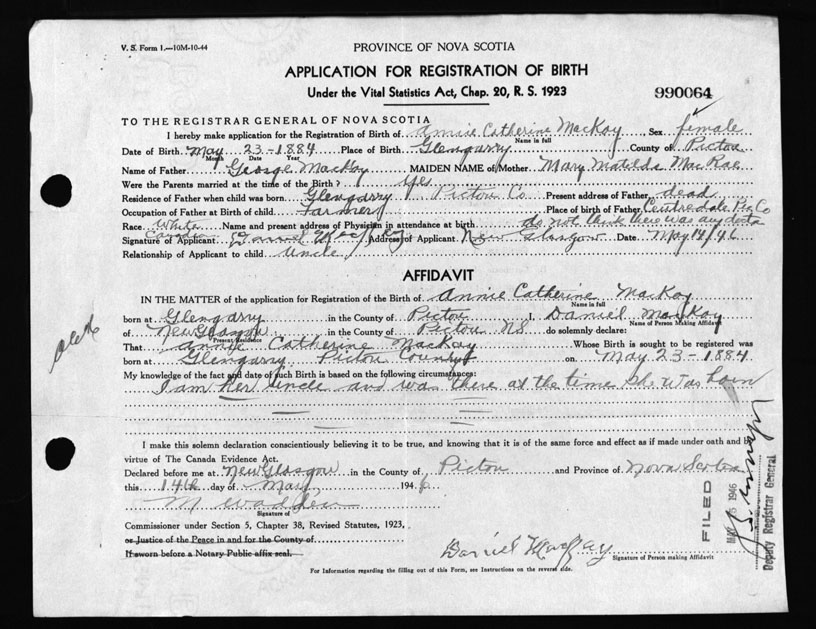 V. S. Form 1.—10M-10-44
PROVINCE OF NOVA SCOTIA
APPLICATION FOR REGISTRATION OF BIRTH
Under the Vital Statistics Act, Chap. 20, R. S. 1923
990064
TO THE REGISTRAR GENERAL OF NOVA SCOTIA
I hereby make application for the Registration of Birth of Annie Catherine MacKay, Sex female
Name in full
Date of Birth May 23-1884 Place of Birth Glengarry County of Pictou
Month Date Year
Name of Father George MacKay MAIDEN NAME of Mother Mary Matilda MacRae
Were the Parents married at the time of the Birth? yes
Residence of Father when child was born Glengarry Pictou Co Present address of Father dead
Occupation of Father at Birth of child Farmer Place of birth of Father Centredale Pic Co
Race White Name and present address of Physician in attendance at birth do not think there was any doctor
Canadian
Signature of Applicant Daniel MacKay Address of Applicant New Glasgow Date May 14/46
Relationship of Applicant to child Uncle
AFFIDAVIT
IN THE MATTER of the application for Registration of the Birth of Annie Catherine MacKay
Name in full
born at Glengarry in the County of Pictou I, Daniel MacKay
Name of Person Making Affidavit
of New Glasgow in the County of Pictou NS do solemnly declare:
Present Residence
That Annie Catherine MacKay Whose Birth is sought to be registered was
born at Glengarry Pictou County on May 23-1884
My knowledge of the fact and date of such Birth is based on the following circumstances:
I am her uncle and was there at the time she was born
I make this solemn declaration conscientiously believing it to be true, and knowing that it is of the same force and effect as if made under oath and by
virtue of The Canada Evidence Act.
Declared before me at New Glasgow in the County of Pictou and Province of Nova Scotia
this 14th day of May 1946
Signature of
Commissioner under Section 5, Chapter 38, Revised Statutes, 1923,
or Justice of the Peace in and for the County of
If sworn before a Notary Public affix seal.
Daniel MacKay
Signature of Person making Affidavit
For Information regarding the filling out of this Form, see Instructions on the reverse side.
FILED
1946
Deputy Registrar General